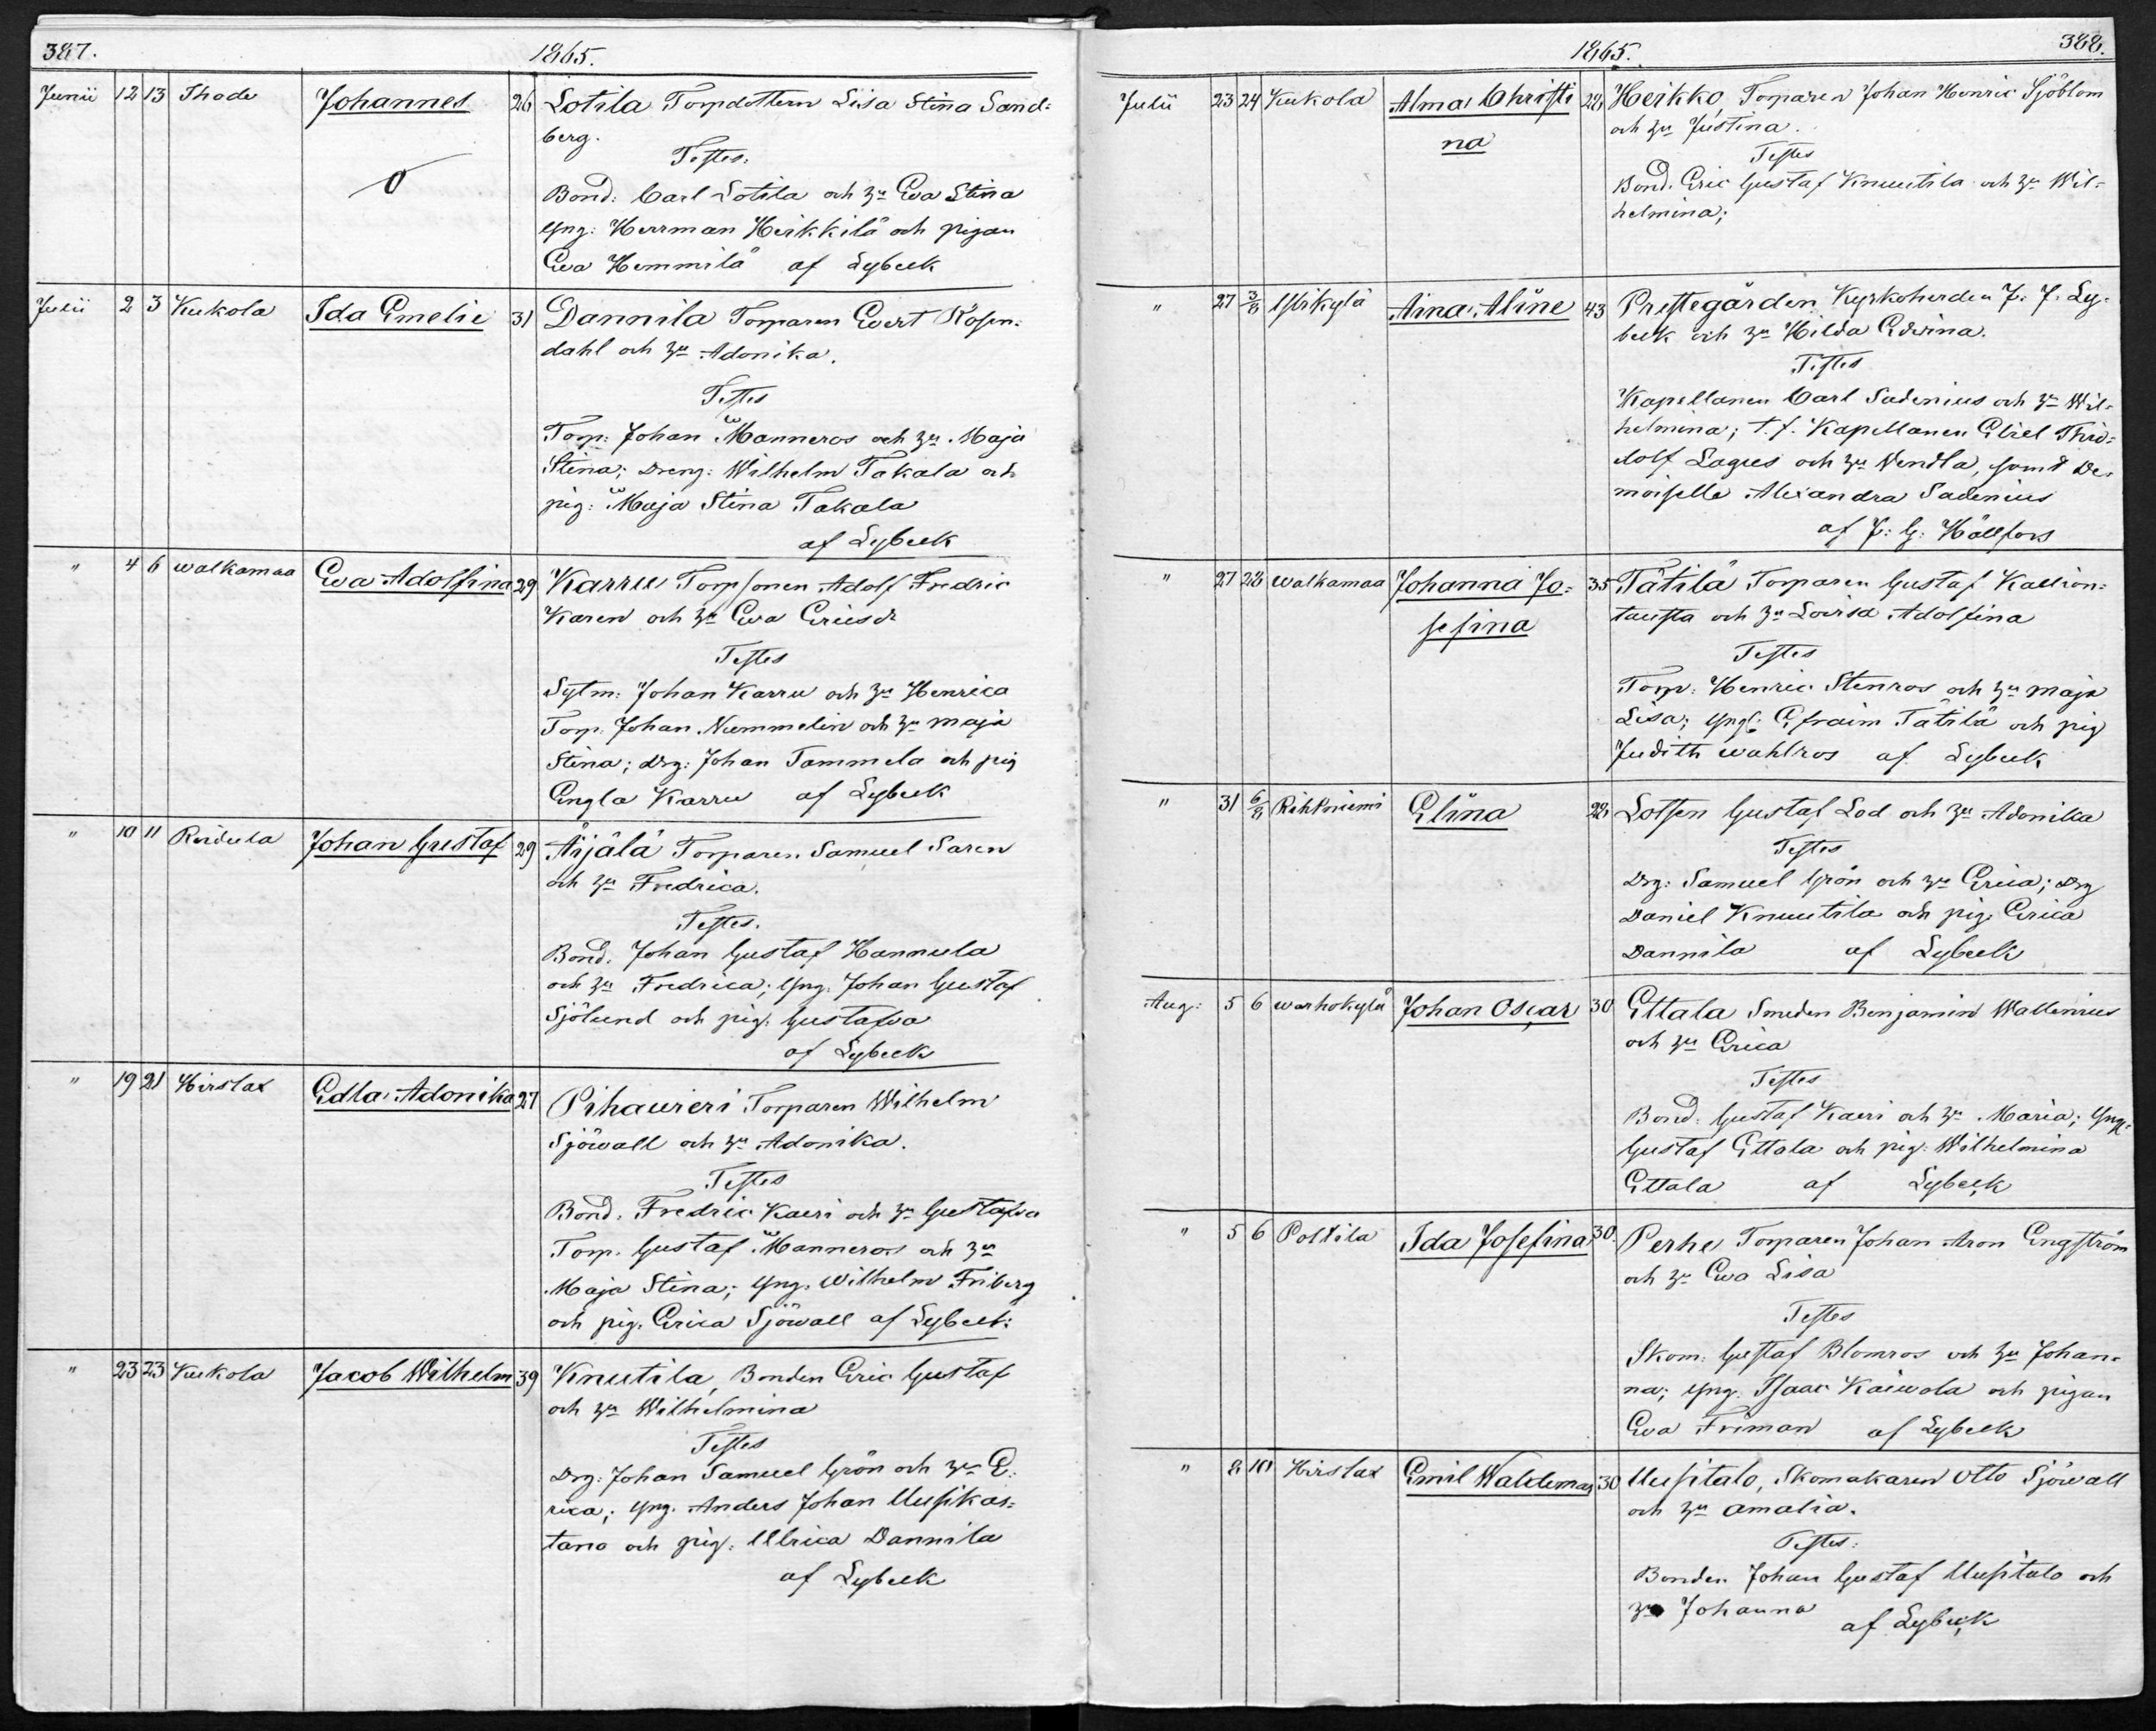 387. 1865.
Junii 12 13 Ihode Johannes 26 Lotila Torpdottern Liisa Stina Sand:
berg.
Testes:
Bond: Carl Lotila och hu Eva Stina
yng: Herrman Heikkilä och pigan
Eva Hemmilä af Lybeck
Julii 2 3 Kukola Ida Emelie 31 Dannila Torparen Evert Rosen:
dahl och hu Adonika.
Testes
Torp: Johan Manneros och hu Maja
Stina; Dreng: Wilhelm Takala och
pig: Maja Stina Takala
af Lybeck
" 4 6 walkamaa Eva Adolfina 29 Karru Torpsonen Adolf Fredric
Karen och hu Eva Ericsdr
Testes
Sytm: Johan Karru och hu Henrica
Torp. Johan Nummelin och hu Maja
Stina; drg: Johan Tammela och pig
Engla Karru af Lybeck
" 10 11 Reidula Johan Gustaf 29 Äijälä Torparen Samuel Saren
och hu Fredrica.
Testes.
Bond. Johan Gustaf Hannula
och hu Fredrica; yng. Johan Gustaf
Sjölund och pig. Gustafva
af Lybeck
" 19 21 Hirslax Edla Adonika 27 Pihaureri Torparen Wilhelm
Sjöwall och hu Adonika.
Testes
Bond. Fredric Kaeri och hu Gustafva
Torp. Gustaf Manneros och hu
Maja Stina; yng. Wilhelm Friberg
och pig. Erica Sjöwall af Lybeck:
" 23 23 Kukola Jacob Wilhelm 39 Knutila, Bonden Eric Gustaf
och hu Wilhelmina
Testes
Drg: Johan Samuel Grön och hu E:
rica; yng. Anders Johan Uusikar:
tano och pig: Ulrica Dannila
af Lybeck
1865. 388.
Julii 23 24 Kukola Alma Christi 28 Heikko, Torparen Johan Henric Sjöblom
na och hu Justina.
Testes
Bond. Eric Gustaf Knuutila och hu Wil=
helmina;
" 27 3/8 Ylikylä Aina Aline 43 Prestegården, Kyrkoherden J. J. Ly:
beck och hu Hilda Edvina.
Testes
Kapellanen Carl Sadenius och hu Wil=
helmina; t. f. Kapellanen Eliel Thio=
dolf Lagus och hu Wendla, samt De=
moiselle Alexandra Sadenius
af J: G: Hällfors
" 27 28 walkamaa Johanna Jo= 35 Tätilä Torparen Gustaf Kallion:
sefina tausta och hu Lovisa Adolfina
Testes
Torp: Henric Stenros och hu Maja
Lisa; yngl. Efraim Tätilä och pig
Judith Wahlros af Lybeck
" 31 6/8 Rihtniemi Elina 28 Lotsen Gustaf Lod och hu Adonika
Testes
Drg: Samuel Grön och hu Erica; drg
Daniel Knuutila och pig. Erica
Dannila af Lybeck
Aug: 5 6 warhokylä Johan Oscar 30 Ettala Smeden Benjamin Wallenius
och hu Erica
Testes
Bond. Gustaf Kaeri och hu Maria; yngl.
Gustaf Ettala och pig: Wilhelmina
Ettala af Lybeck
" 5 6 Poltila Ida Josefina 30. Perhe, Torparen Johan Aron Engström
och hu Eva Lisa
Testes
Skom: Gustaf Blomros och hu Johan=
na; yng. Isaac Kaiwola och pigan
Eva Friman af Lybeck
" 8 10 Hirslax Emil Waldemar 30 Uusitalo, Skomakaren Otto Sjöwall
och hu Amalia.
Testes:
Bonden Johan Gustaf Uusitalo och
hu Johanna af Lybeck